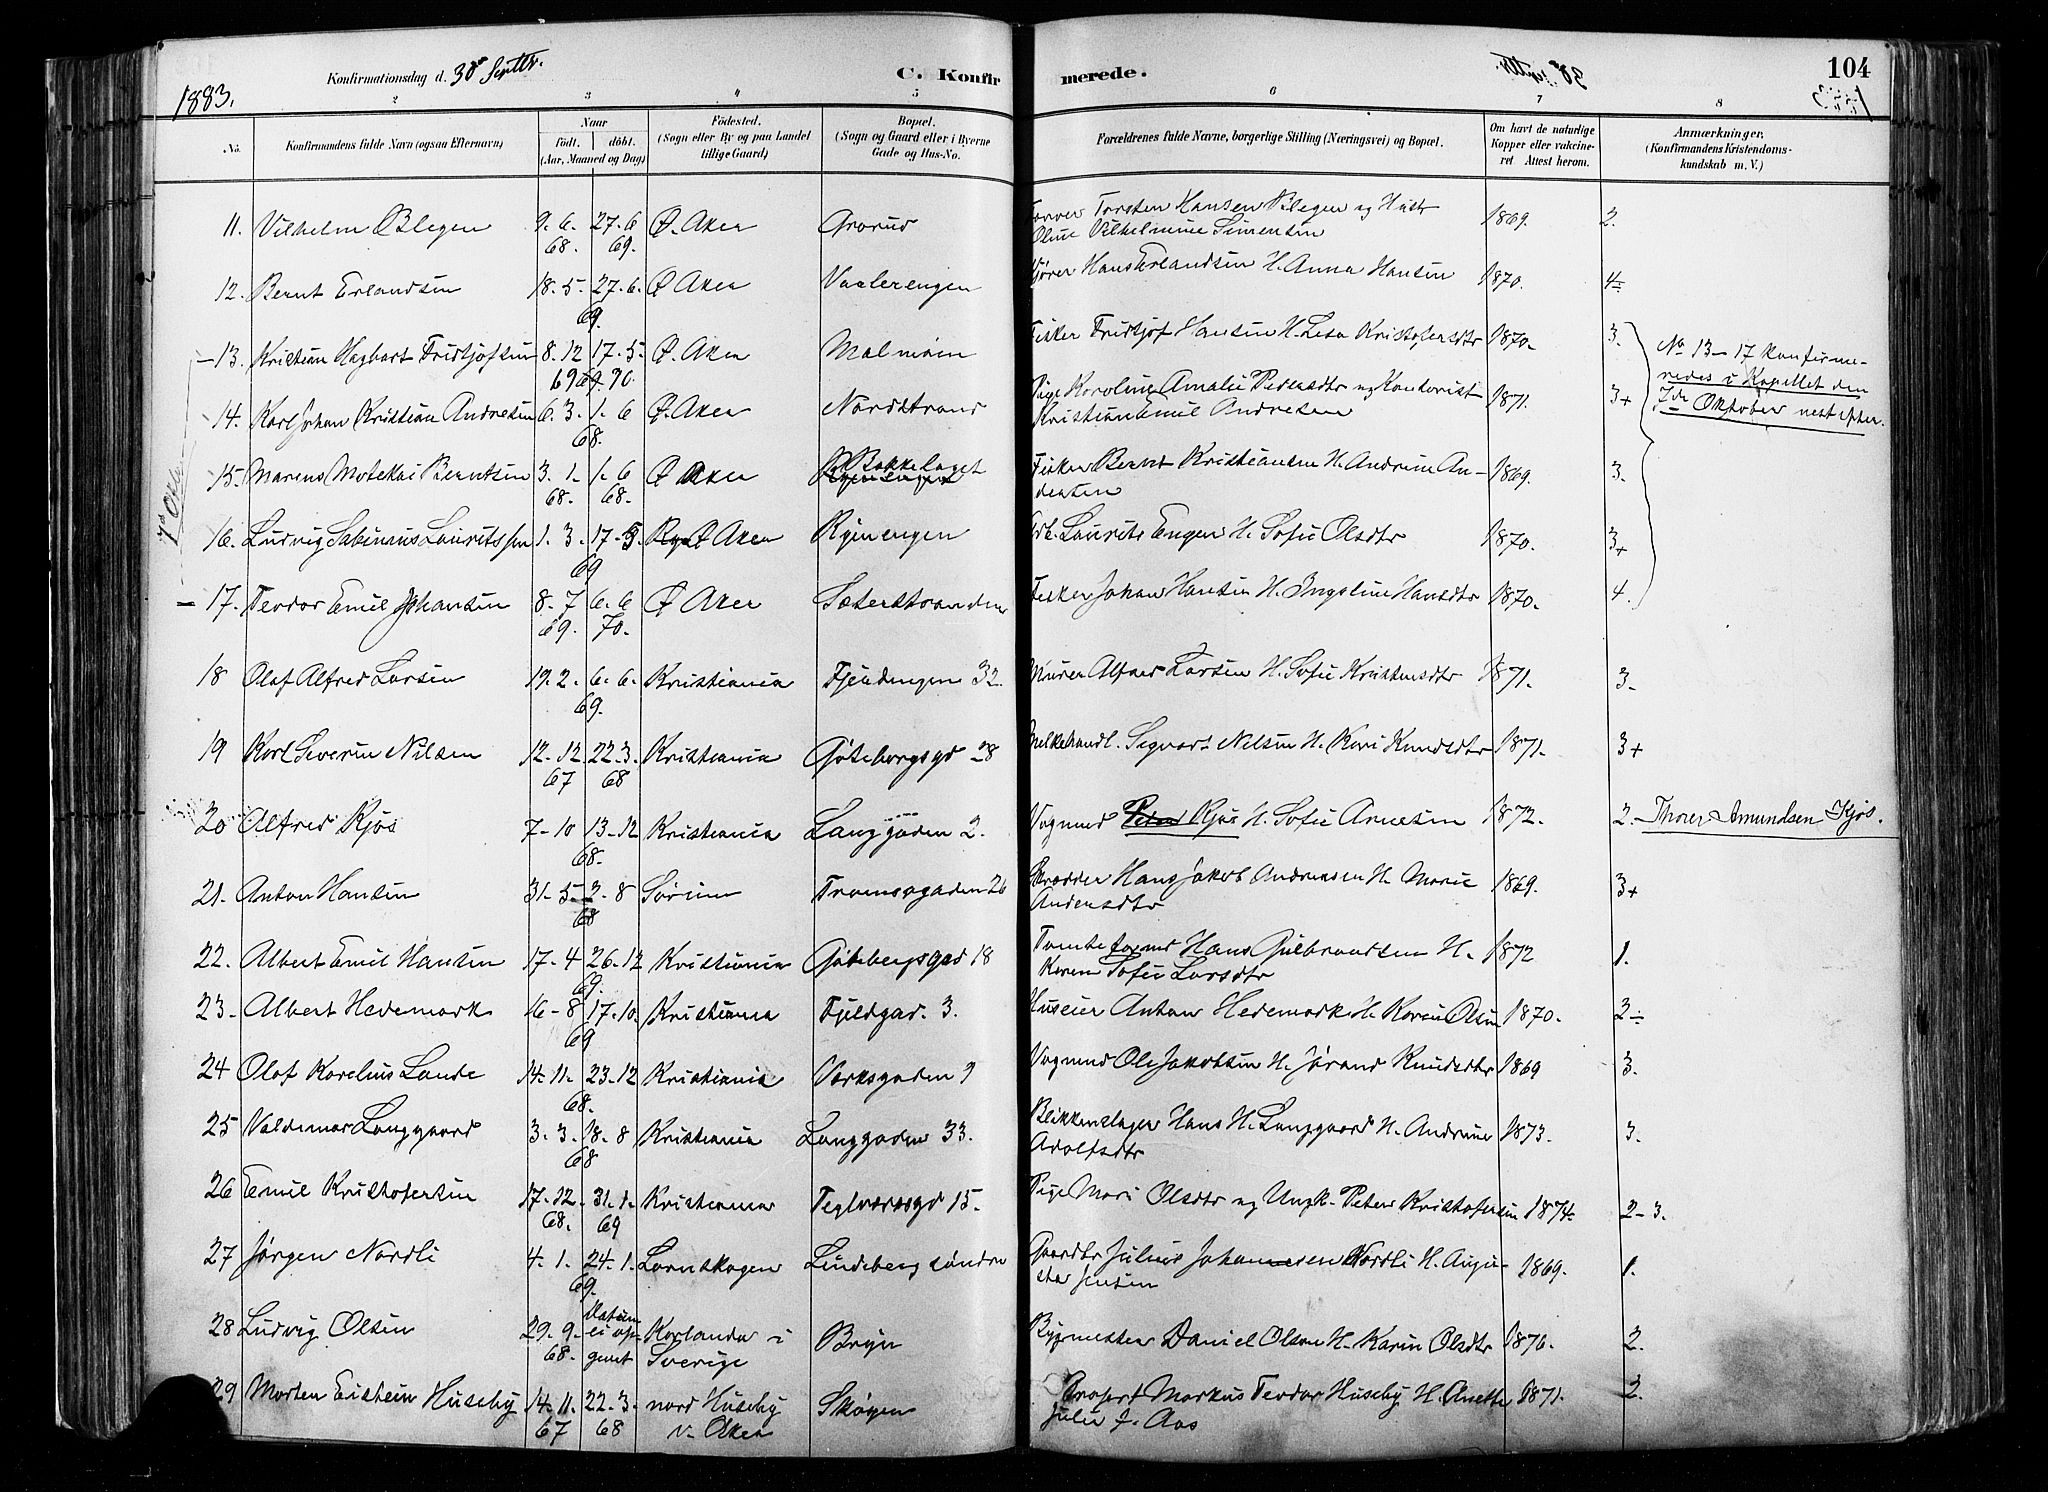 1883.
Konfirmationsdag d. 30te Septbr.
C. Konfirmerede.
104
2 3 4 5 6 7 8
No.
Konfirmandens fulde Navn (ogsaa Efternavn)
Naar
født. døbt.
(Aar, Maaned og Dag)
Fødested.
(Sogn eller By og paa Landet
tillige Gaard)
Bopæl.
(Sogn og Gaard eller i Byerne
Gade og Hus-No.
Forældrenes fulde Navne, borgerlige Stilling (Næringsvei) og Bopæl.
Om havt de naturlige
Kopper eller vakcine-
ret Attest herom.
Anmærkninger.
(Konfirmandens Kristendoms-
kundskab m. V.)
11. Vilhelm Blegen 9.6. 68. 27.6 69. Ø. Aker Grorud Torsten Hansen Blegen og Hustr 1869. 2.
Oline Vilhelmine Simensen
12. Bernt Erlandsen 18.5. 27.6. 69. Ø Aker Vaalerengen Kjører Hans Erlandsen H. Anna Hansen 1870. 4-
13. Kristian Hagbart Fridtjofsen 8.12 69 17.5. 70. Ø. Aker Malmøen Fisker Fridtjof Hansen H. Lisa Kristofersdtr 1870. 3.
No 13-17 konfirme-
redes i Kapellet den
7de Oktober nest efter.
14. Karl Johan Kristian Andresen 6.3. 1.6 68. Ø. Aker Nordstrand Pige Karoline Amalie Pedersdtr og Kontorist 1871. 3+
Kristian Emil Andresen
15. Berntsen 3.1. 68. 1.6 68. Ø Aker Bækkelaget Fisker Bernt Kristiansen H. Andrine An- 1869. 3.
dersen
7d Okt
16. Ludvig Sabinius Lauritssen 1.3. 17.5 69 Ø Aker Ryenengen Arb. Laurits Engen H. Sofie Olsdtr 1870. 3+
17. Teodor Emil Johansen 8.7 69. 6.6 70. Ø Aker Sæterstranden Fisker Johan Hansen H. Ingeline Hansdtr 1870. 4.
18 Olaf Alfred Larsen 19.2. 6.6. 69. Kristiania Fjeldengen 32. Murer Alfred Larsen H. Sofie Kristensdtr 1871. 3-
19 Karl Severin Nilsen 12.12 67 22.3. 68 Kristiania Gøteborgsgd 28 Melkehandl. Sigvart Nilsen H. Kari Knudsdtr 1871. 3+
20 Alfred Kjøs 7-10 13-12 68. Kristiania Langgaden 2. Vognmd Peder Kjøs H. Sofie Arnesen 1872. 2. Thorer Amundsen Kjøs.
21. Anton Hansen 31.5. 2.8 68 Sørum Tromsøgaden 26 Skrædder Hans Jakob Andreasen H. Marie 1869. 3+
Andersdtr
22. Albert Emil Hansen 17-4 26-12 69. Kristiania Gøteborgsgad 18 Tomte Hans Gulbrandsen H. 1872 1.
Karen Sofie Larsdtr
23. Albert Hedemark 16-8 17-10. 69 Kristiania Fjeldgad. 3. Huseier Anton Hedemark H. Karen Olsen 1870. 2÷
24 Olaf Kornelius Lande 14.11. 23.12 68. Kristiania Verksgaden 9 Vognmd Ole Jakobsen H. Jørand Knudsdtr 1869 3.
25 Valdemar Langgaard 3.3. 18.8 68 Kristiania Langgaden 33. Blikkenslager Hans H. Langgaard H. Andrine 1873. 3.
Adolfsdtr
26 Emil Kristofersen 17.12. 68. 31.1. 69 Kristiania Teglværksgd 15. Pige Mari Olsdtr og Ungk. Peter Kristofersen 1874. 2-3.
27 Jørgen Nordli 4.1. 24.1. 69. Lørenskogen Lindeberg søndre Gaardbr Julius Johannesen Nordli H. Augu- 1869. 1.
sta Jensen
28 Ludvig Olsen 29.9. 68. Datum ei op- givet i Sverige Bryn Bygmester Daniel Olsen H. Karin Olsdtr 1876. 2.
29 Morten Eistein Huseby 14.11. 67 22.3. 68 nord Huseby v. Aker Skøyen Propriet Markus Teodor Huseby H. Anette 1871. 2.
Julie J. Aas